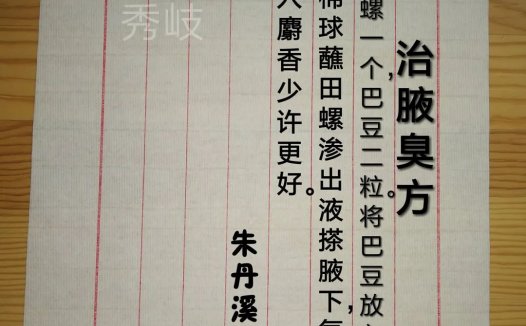 治腋臭方
螺一个,巴豆二粒。将巴豆放
棉球蘸田螺渗出液搽腋下,
入麝香少许更好。
朱丹溪
秀岐